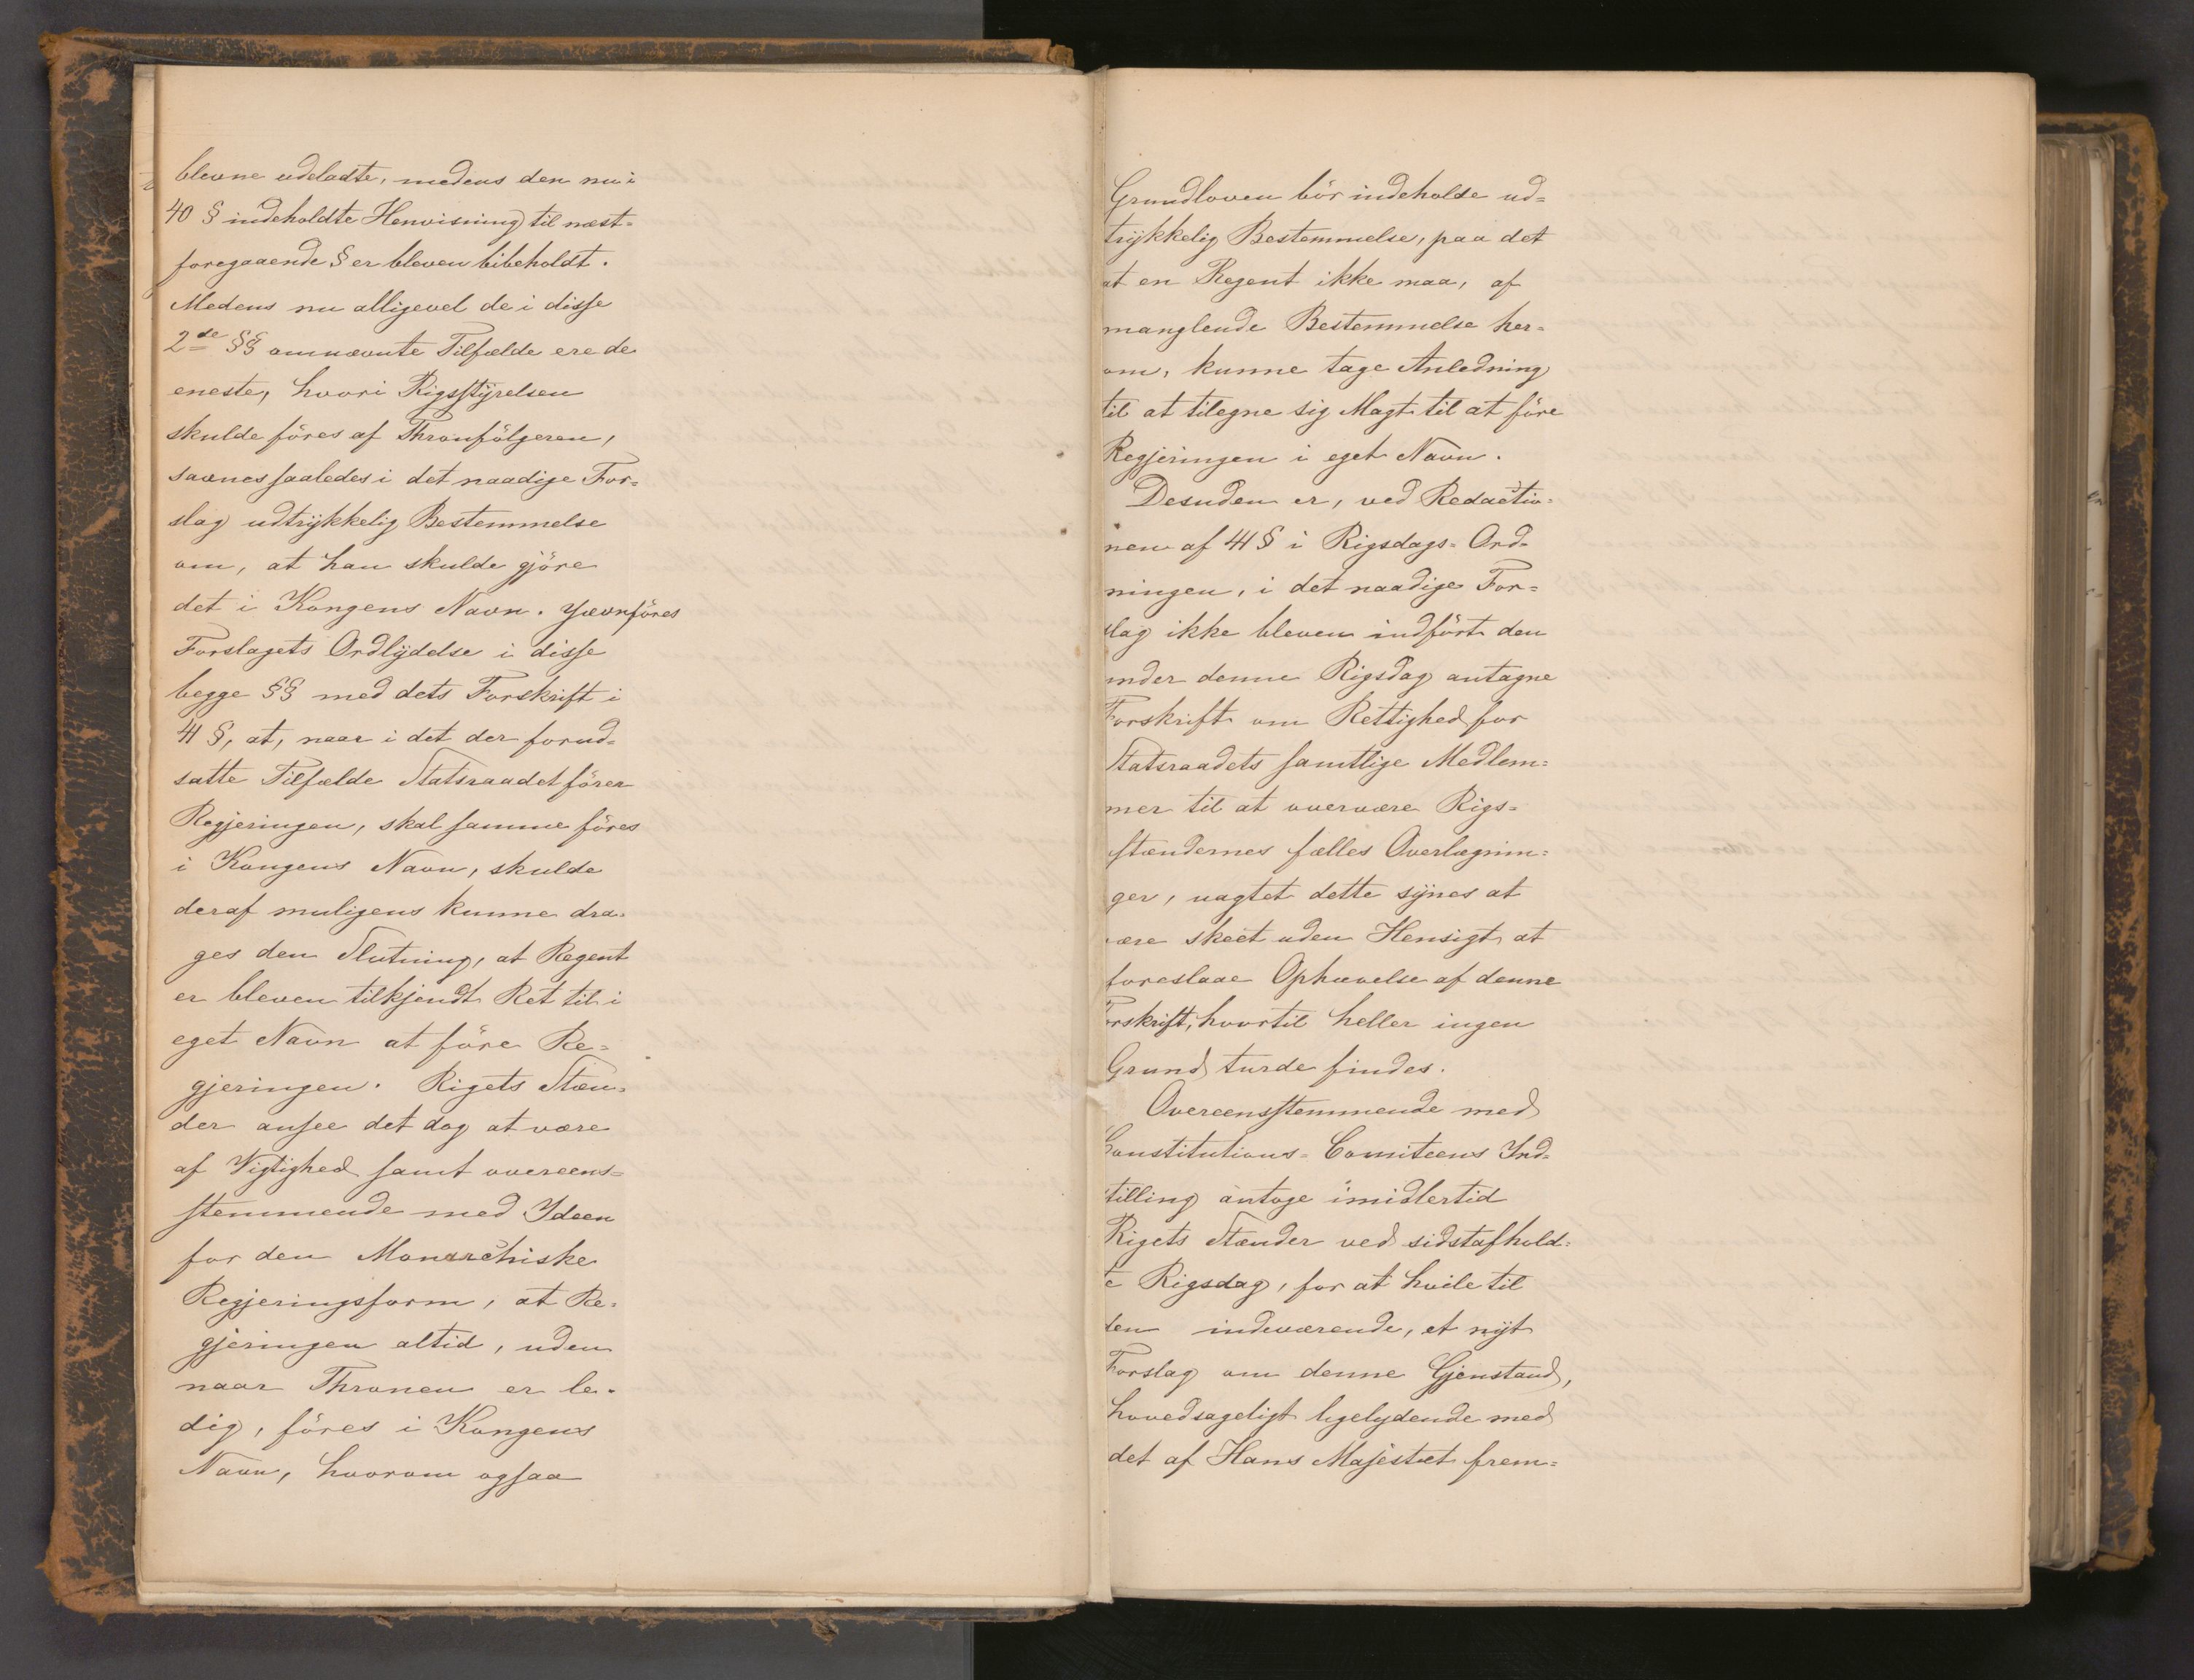 blevne udeladte, medens den nu i
40 § indeholdte Henvisning til næst-
foregaaende § er bleven bibeholdt.
Medens nu alligevel de i disse
2de §§ omnævnte Tilfælde ere de
eneste, hvori Rigsstÿrelsen
skulde föres af Thronfölgeren,
savnes saaledes i det naadige For-
slag udtrÿkkelig Bestemmelse
om, at han skulde gjöre
det i Kongens Navn. Jævnföres
Forslagets Ordlÿdelse i disse
begge §§ med dets Forskrift i
41 §, at, naar i det der forud-
satte Tilfælde Statsraadet förer
Regjeringen, skal samme föres
i Kongens Navn, skulde
deraf muligens kunne dra-
ges den Slutning, at Regent
er bleven tilkjendt Ret til i
eget Navn at före Re-
gjeringen. Rigets Stæn-
der ansee det dog at være
af Vigtighed samt overeens-
stemmende med Ideen
for den Monarchiske
Regjeringsform, at Re-
gjeringen altid, uden
naar Thronen er le-
dig, föres i Kongens
Navn, hvorom ogsaa
Grundloven bör indeholde ud-
trÿkkelig Bestemmelse, paa det
at en Regent ikke maa, af
manglende Bestemmelse her-
om, kunne tage Anledning
til at tilegne sig Magt til at före
Regjeringen i eget Navn.
Desuden er, ved Redactio-
nen af 41 § i Rigsdags-Ord-
ningen, i det naadige For-
slag ikke bleven indfört den
under denne Rigsdag antagne
Forskrift om Rettighed for
Statsraadets samtlige Medlem-
mer til at overvære Rigs-
stændernes fælles Overlægnin-
ger, uagtet dette sÿnes at
være skeet uden Hensigt at
foreslaae Ophævelse af denne
Forskrift, hvortil heller ingen
Grund turde findes.
Overeensstemmende med
Constitutions-Comiteens Ind-
stilling antoge imidlertid
Rigets Stænder ved sidstafhold-
te Rigsdag, for at hvile til
den indeværende, et nÿt
Forslag om denne Gjenstand,
hovedsageligt ligelydende med
det af Hans Majestæt frem-